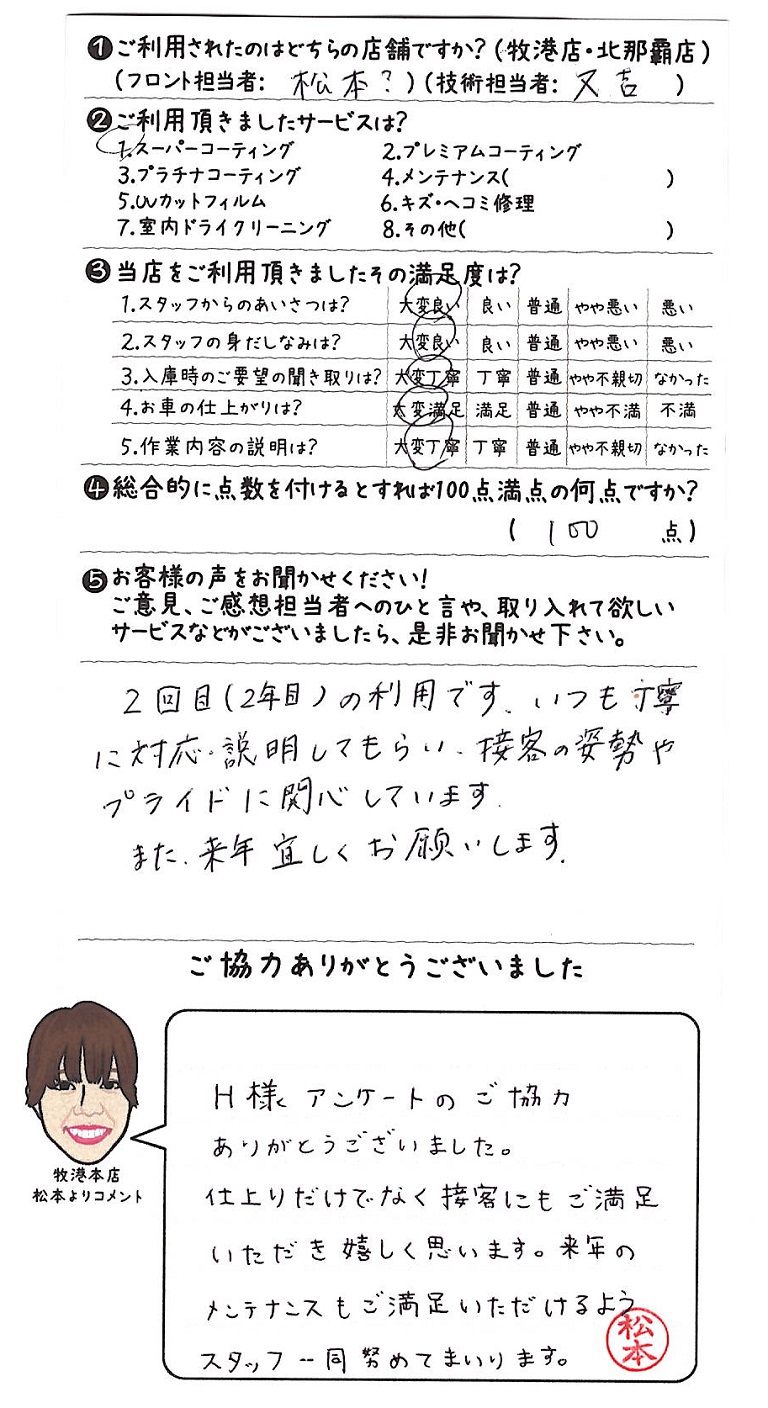 ❶ご利用されたのはどちらの店舗ですか?(牧港店・北那覇店)
(フロント担当者: 松本?)(技術担当者: 又吉 )
❷ご利用頂きましたサービスは?
1.スーパーコーティング 2.プレミアムコーティング
3.プラチナコーティング 4.メンテナンス( )
5.UVカットフィルム 6.キズ・ヘコミ修理
7.室内ドライクリーニング 8.その他( )
❸当店をご利用頂きましたその満足度は?
1.スタッフからのあいさつは? 大変良い 良い 普通 やや悪い 悪い
2.スタッフの身だしなみは? 大変良い 良い 普通 やや悪い 悪い
3.入庫時のご要望の聞き取りは? 大変丁寧 丁寧 普通 やや不親切 なかった
4.お車の仕上がりは? 大変満足 満足 普通 やや不満 不満
5.作業内容の説明は? 大変丁寧 丁寧 普通 やや不親切 なかった
❹総合的に点数を付けるとすれば100点満点の何点ですか?
( 100 点)
❺お客様の声をお聞かせください!
ご意見、ご感想担当者へのひと言や、取り入れて欲しい
サービスなどがございましたら、是非お聞かせ下さい。
2回目(2年目)の利用です、いつも丁寧
に対応・説明してもらい、接客の姿勢や
プライドに関心しています、
また、来年宜しくお願いします。
ご協力ありがとうございました
H様 アンケートのご協力
ありがとうございました。
仕上りだけでなく接客にもご満足
いただき嬉しく思います。来年の
メンテナンスもご満足いただけるよう
スタッフ一同努めてまいります。
松本
牧港本店
松本よりコメント